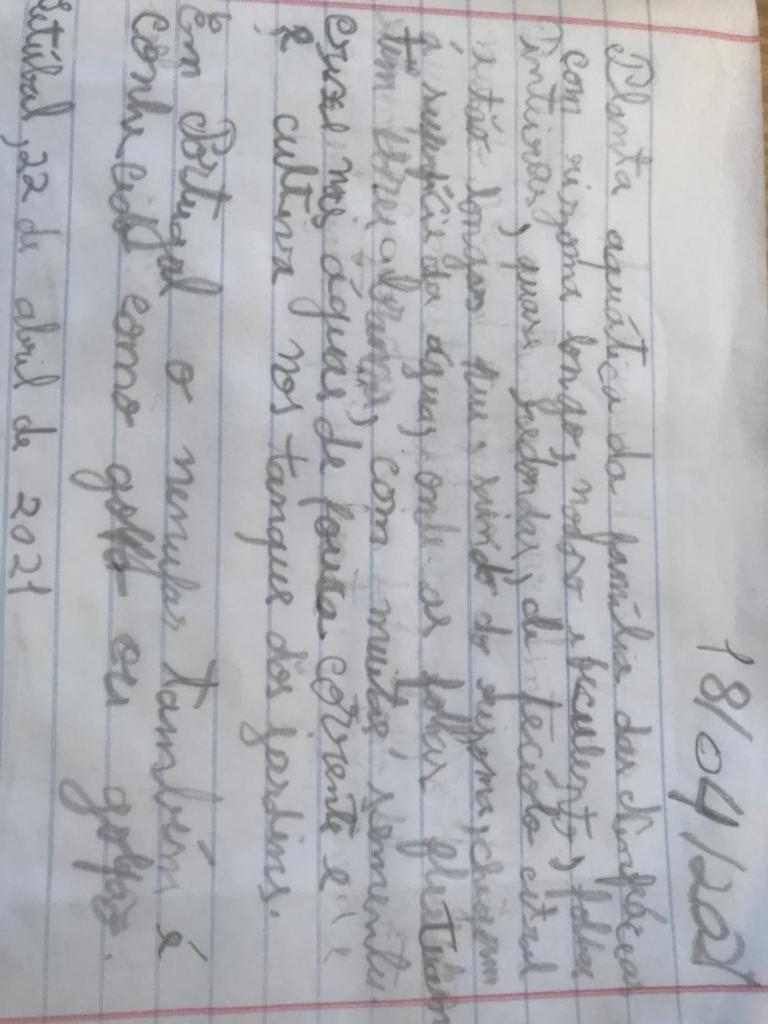 18/04/202
Planta aquática da família das Ninfáceas
com rizoma longo, nodoso e feculento, folhas
inteiras, quase redondas, de tecido
longos que, saindo do rizoma, chegam
à superfície da água, onde as folhas flutuam
tem com muitas sementes
cresce nas águas de pouca corrente e
se cultiva nos tanques dos jardins.
Em Portugal o nenufar também é
conhecido como golfo ou golfão.
Setúbal, 22 de abril de 2021